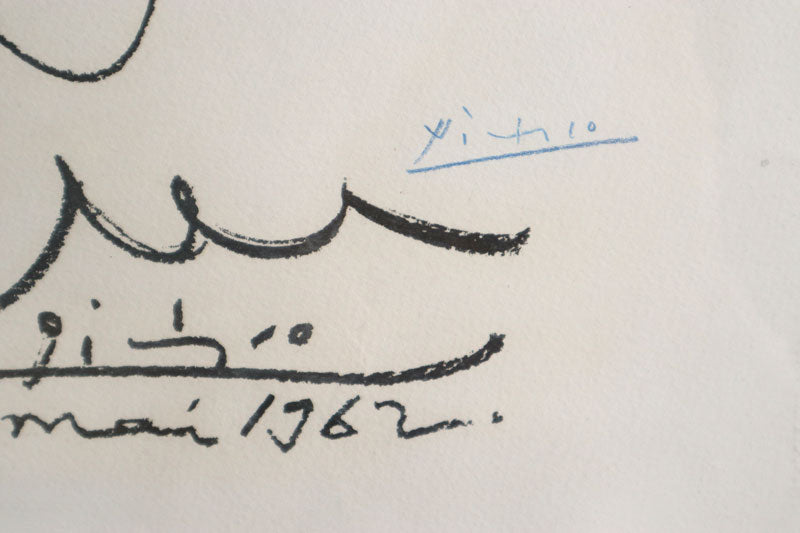 Picasso
Picasso
mai 1962.